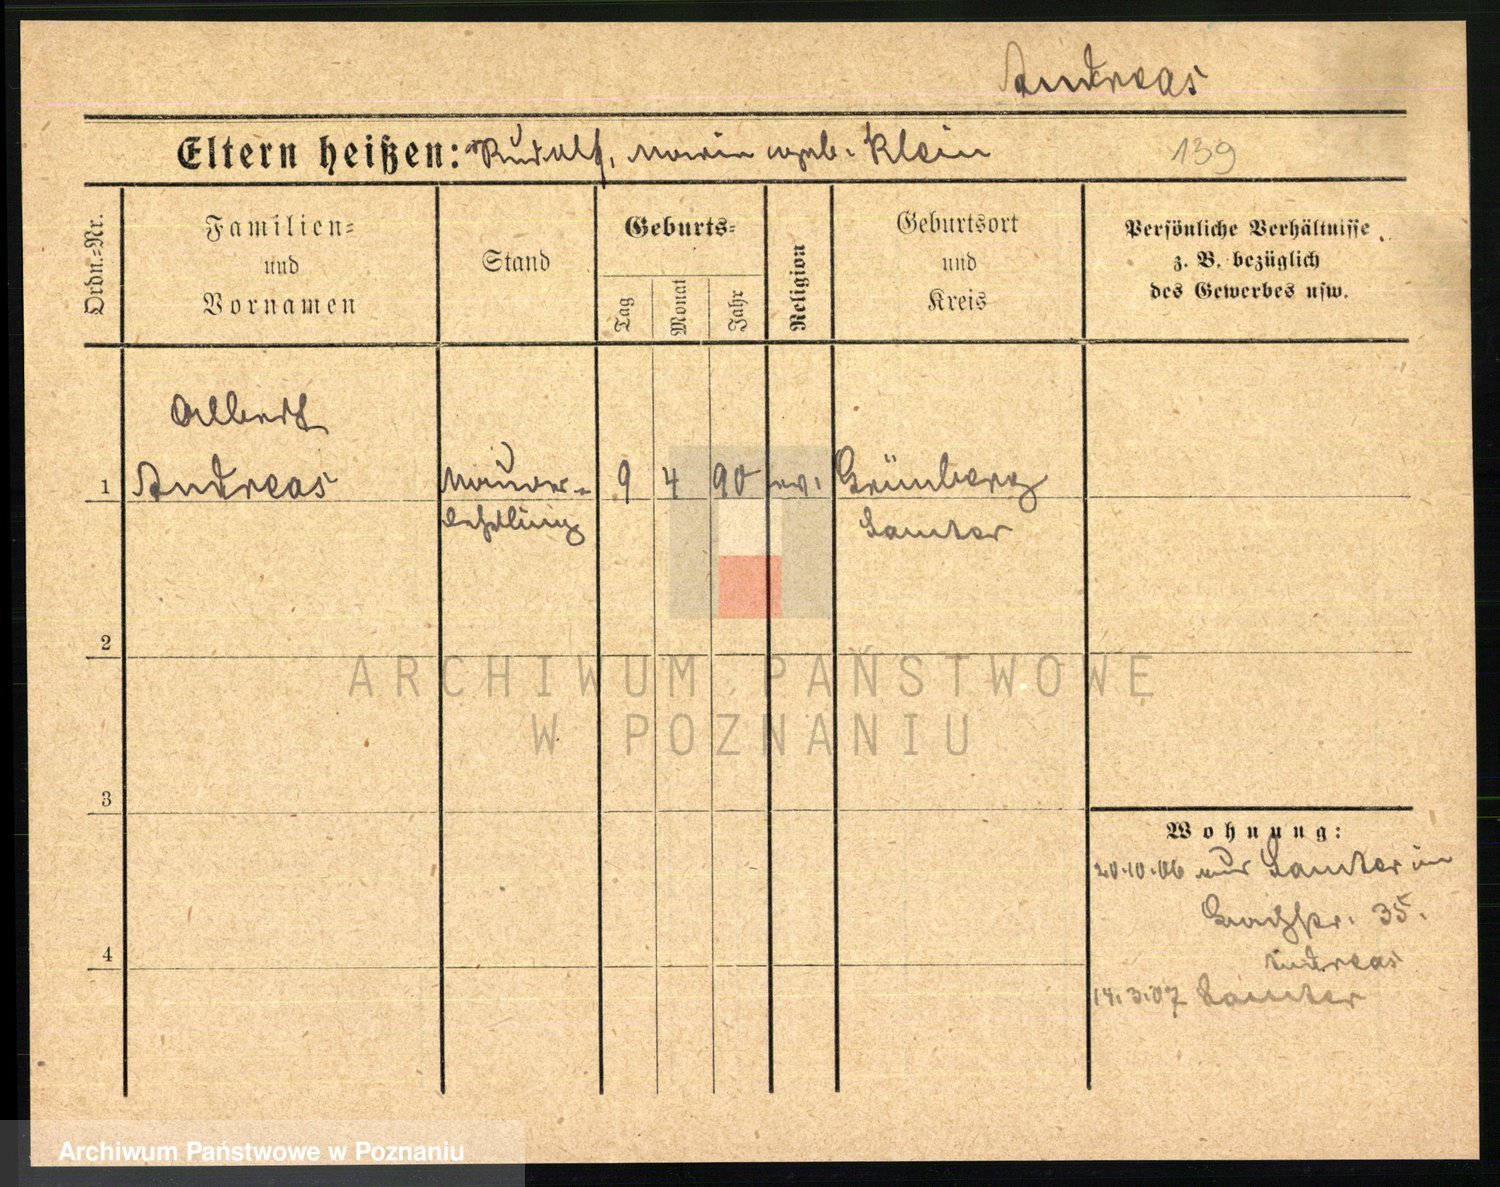 Andreas
Eltern heißen: Rudolf, Marie geb. Klein
139
Ordn.-Nr.
Familien-
und
Vornamen
Stand
Geburts-
Tag
Monat
Jahr
Religion
Geburtsort
und
Kreis
Persönliche Verhältnisse
z. B. bezüglich
des Gewerbes usw.
Albert
1 Andreas Maurer- 9 4 90 ev. Grünberg
lehrling Samter
2
ARCHIWUM PAŃSTWOWE
W POZNANIU
3
Wohnung:
20.10.06 aus Samter in
35.
4
Andreas
14.3.07 Samter
Archiwum Państwowe w Poznaniu